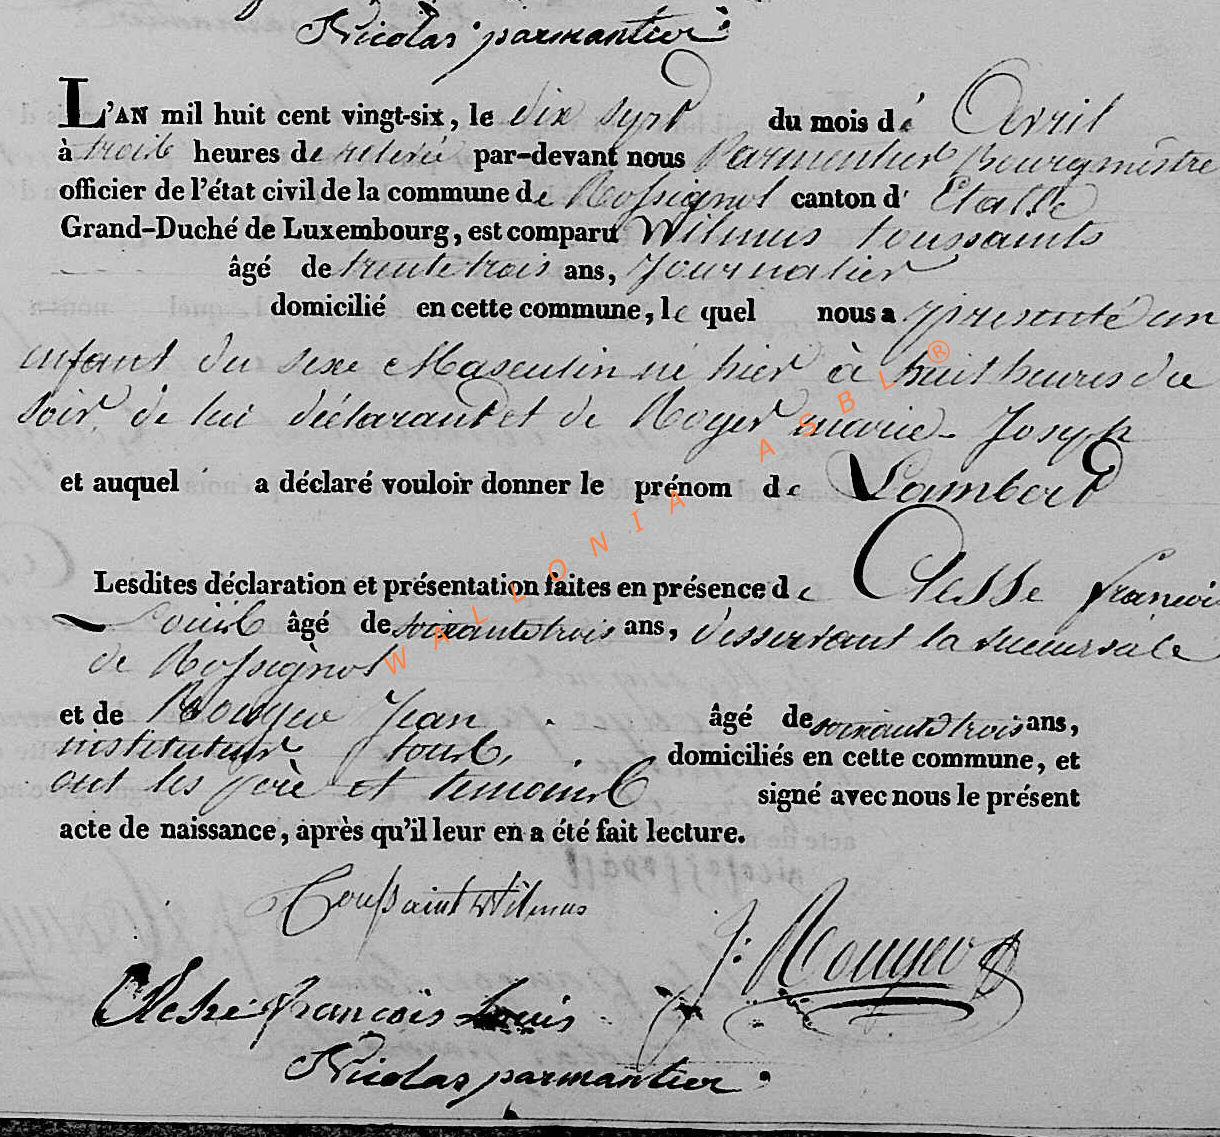 Nicolas parmantier
L'AN mil huit cent vingt-six, le dix sept du mois de Avril
à trois heures de relevée par-devant nous Parmentier Bourgmestre
officier de l'état civil de la commune de Rossignol canton d' Etalle
Grand-Duché de Luxembourg, est comparu Wilmus toussaints
âgé de trente trois ans, Journalier
domicilié en cette commune, le quel nous a presenté un
enfant du sexe Masculin né hier à huit heures du
soir, de lui déclarant et de Roger marie - Joseph
et auquel a déclaré vouloir donner le prénom de Lambert
Lesdites déclaration et présentation faites en présence de francois
Louis âgé de soixante trois ans, desservant la succursale
de Rossignol
et de Rougeo Jean âgé de soixante trois ans,
instituteur tous domiciliés en cette commune, et
ont les père et temoins signé avec nous le présent
acte de naissance, après qu'il leur en a été fait lecture.
Toussaint Wilmus
J: Rougeo
françois Louis
Nicolas parmantier
WALLONIA ASBL ®